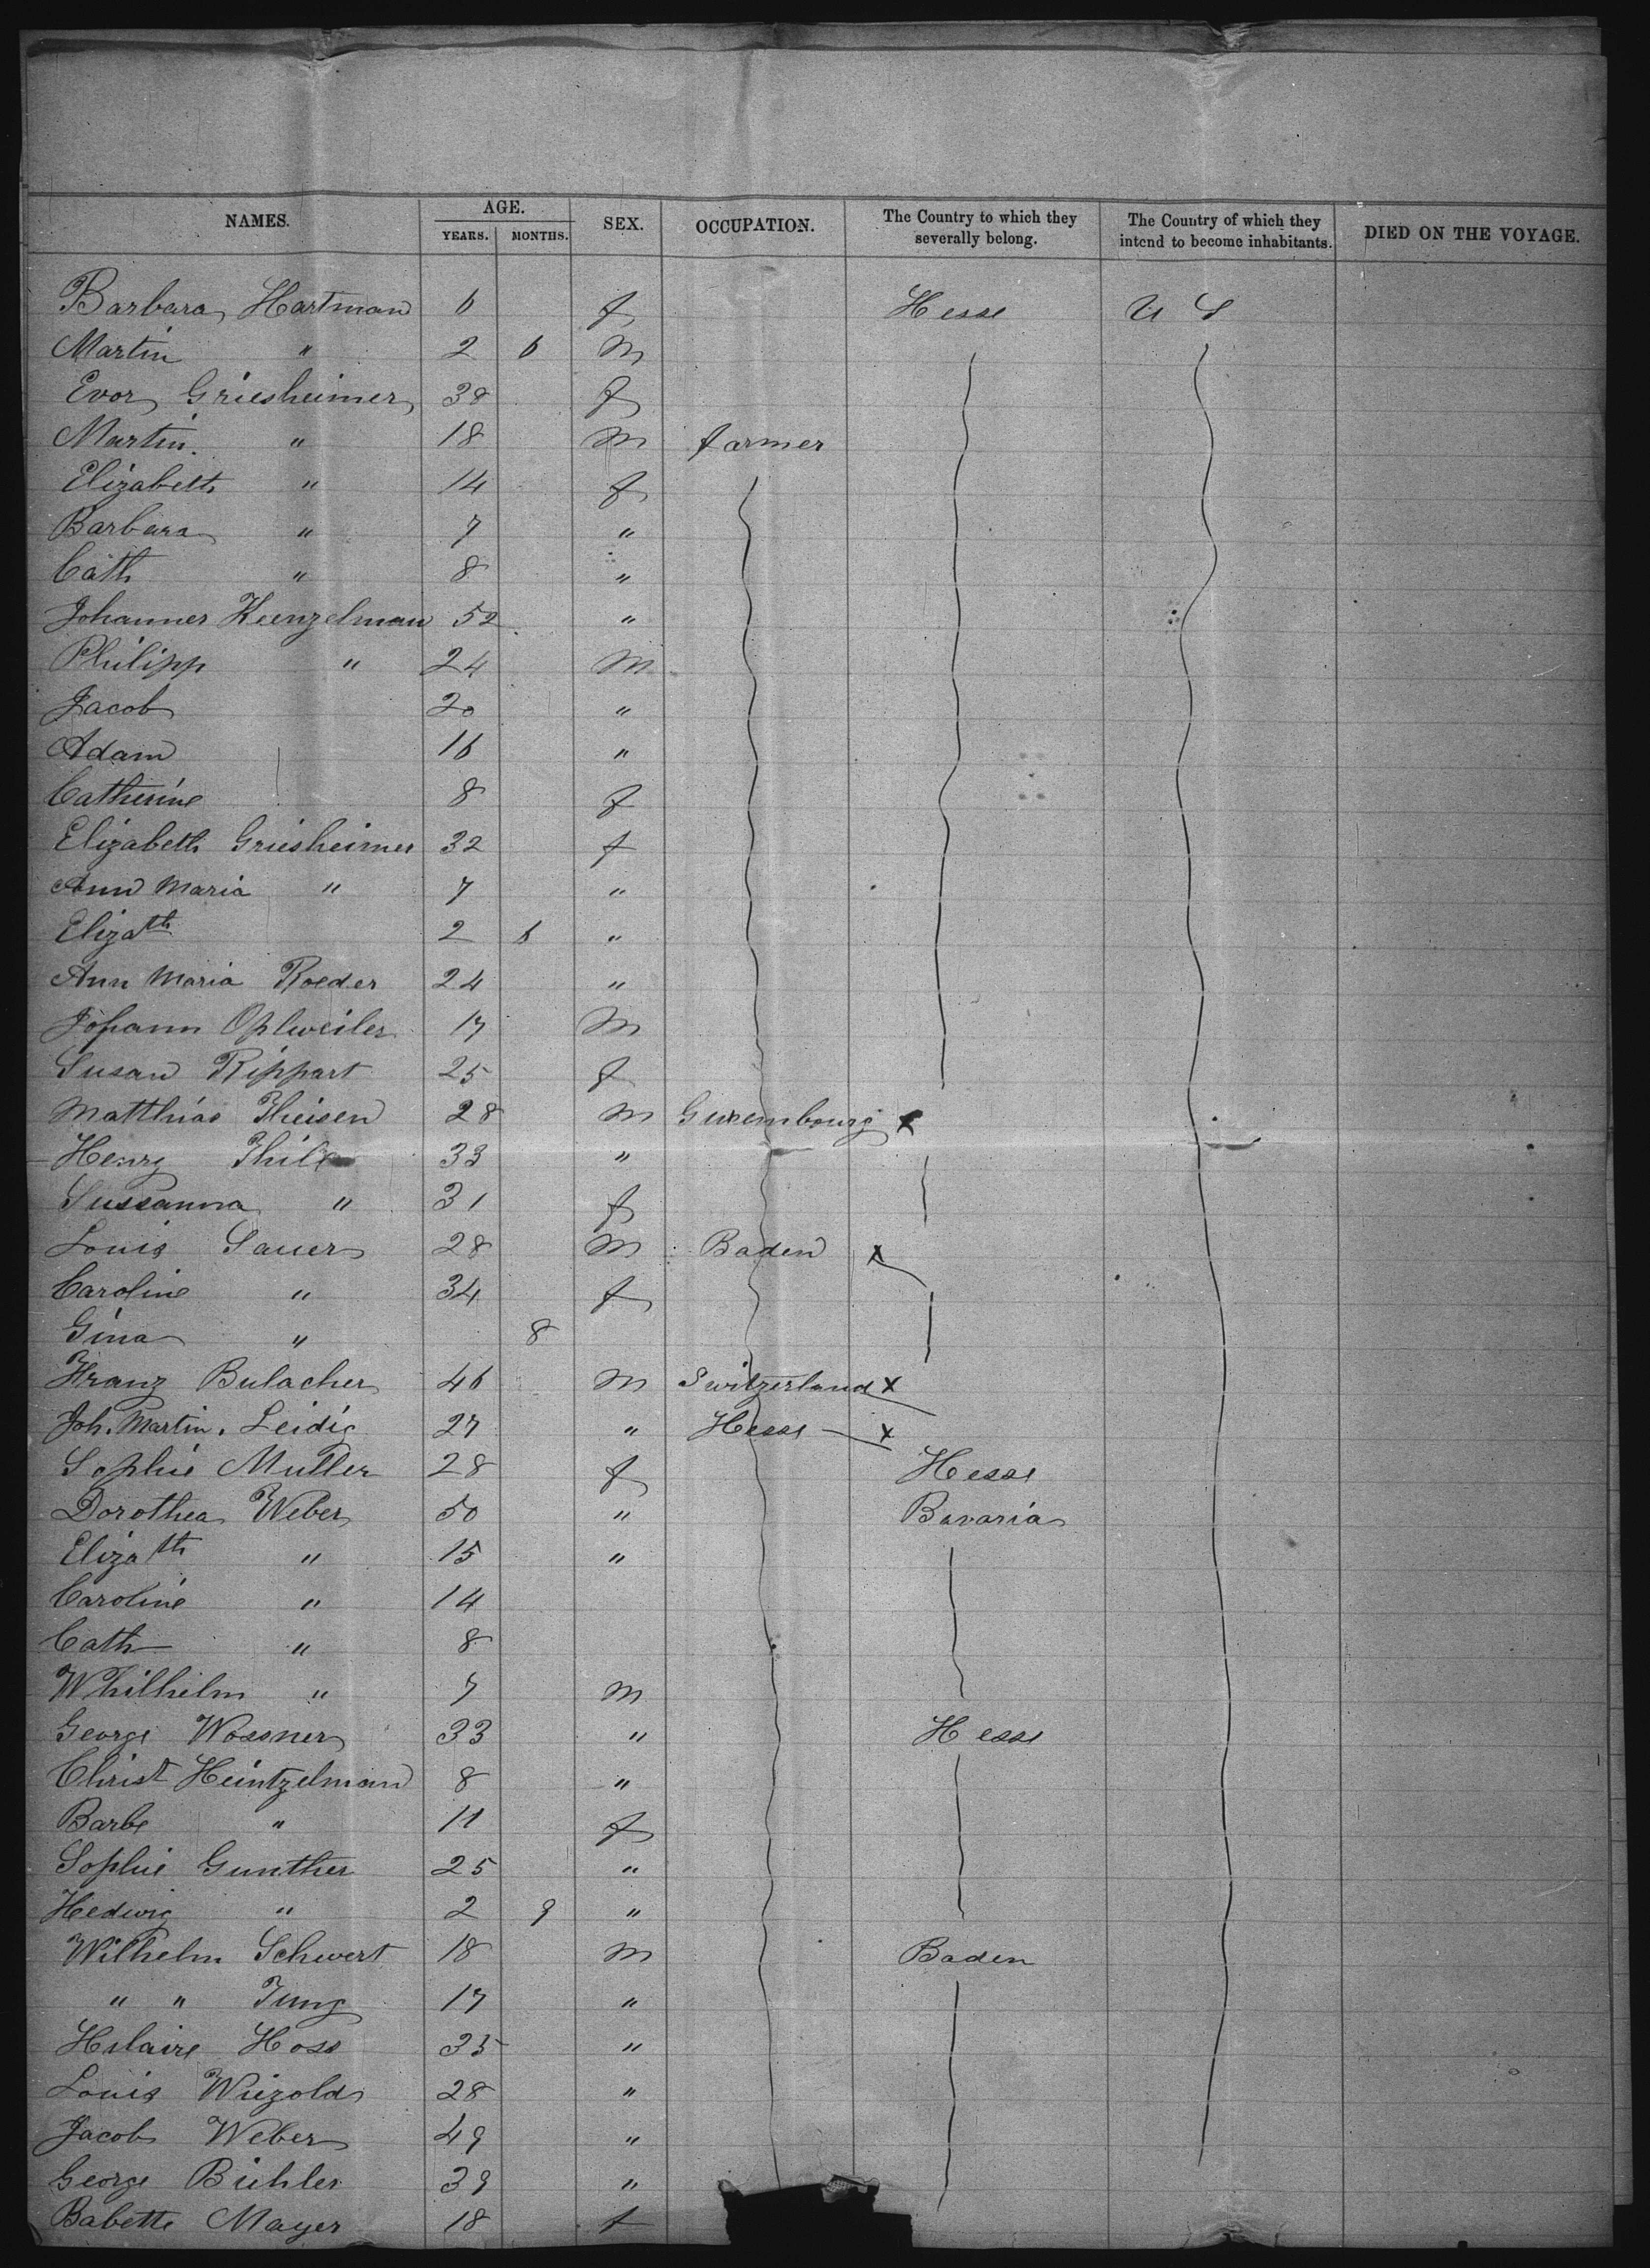 NAMES. AGE. SEX. OCCUPATION. The Country to which they severally belong. The Country of which they intend to become inhabitants. DIED ON THE VOYAGE.
YEARS. MONTHS.
Barbara Hartman 6 f Hesse U S
Martin " 2 6 M
Evor Griesheimer 38 f
Martin " 18 M farmer
Elizabeth " 14 f
Barbara " 7 "
Cath " 8 "
Johannes Kenzelman 52 "
Philipp " 24 M
Jacob 20 "
Adam 16 "
Catherine 8 f
Elizabeth Griesheimer 32 f
Ann Maria " 7 "
Elizath 2 6 "
Ann Maria Roeder 24 "
Johann Oplweiler 17 M
Susan Rippart 25 f
Matthias Theisen 28 M Luxembourg x
Henry 33 "
Sussanna " 31 f
Louis Sauer 28 M Baden x
Caroline " 34 f
Gina " 8
Franz Bulacher 46 M Switzerland x
Joh. Martin. Leidig 27 " Hesse x
Sophie Muller 28 f Hesse
Dorothea Weber 50 " Bavaria
Elizath " 15 "
Caroline " 14
Cath " 8
Whilhelm " 7 M
George Wossner 33 " Hesse
Christ Heintzelman 8 "
Barbe " 11 f
Sophie Gunther 25 "
Hedwig " 2 9 "
Wilhelm Schwert 18 M Baden
" " Jung 17 "
Hilaire Hoss 35 "
Louis Wiezold 28 "
Jacob Weber 49 "
George Buhler 39 "
Babette Mayer 18 f